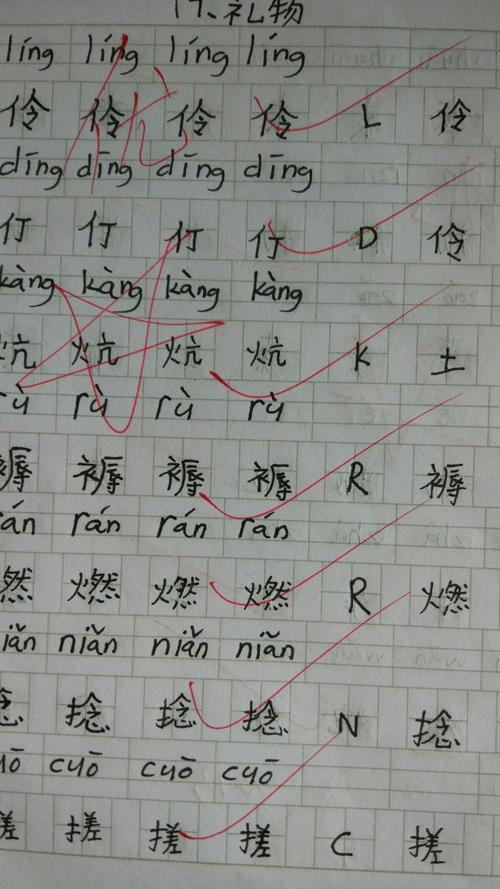 17、礼物
líng líng líng líng
伶 伶 伶 伶 L 伶
dīng dīng dīng dīng
仃 仃 仃 仃 D 伶
kàng kàng kàng kàng
炕 炕 炕 炕 K 土
rù rù rù rù
褥 褥 褥 褥 R 褥
rán rán rán rán
燃 燃 燃 燃 R 燃
niǎn niǎn niǎn niǎn
捻 捻 捻 捻 N 捻
cuō cuō cuō cuō
搓 搓 搓 搓 C 搓